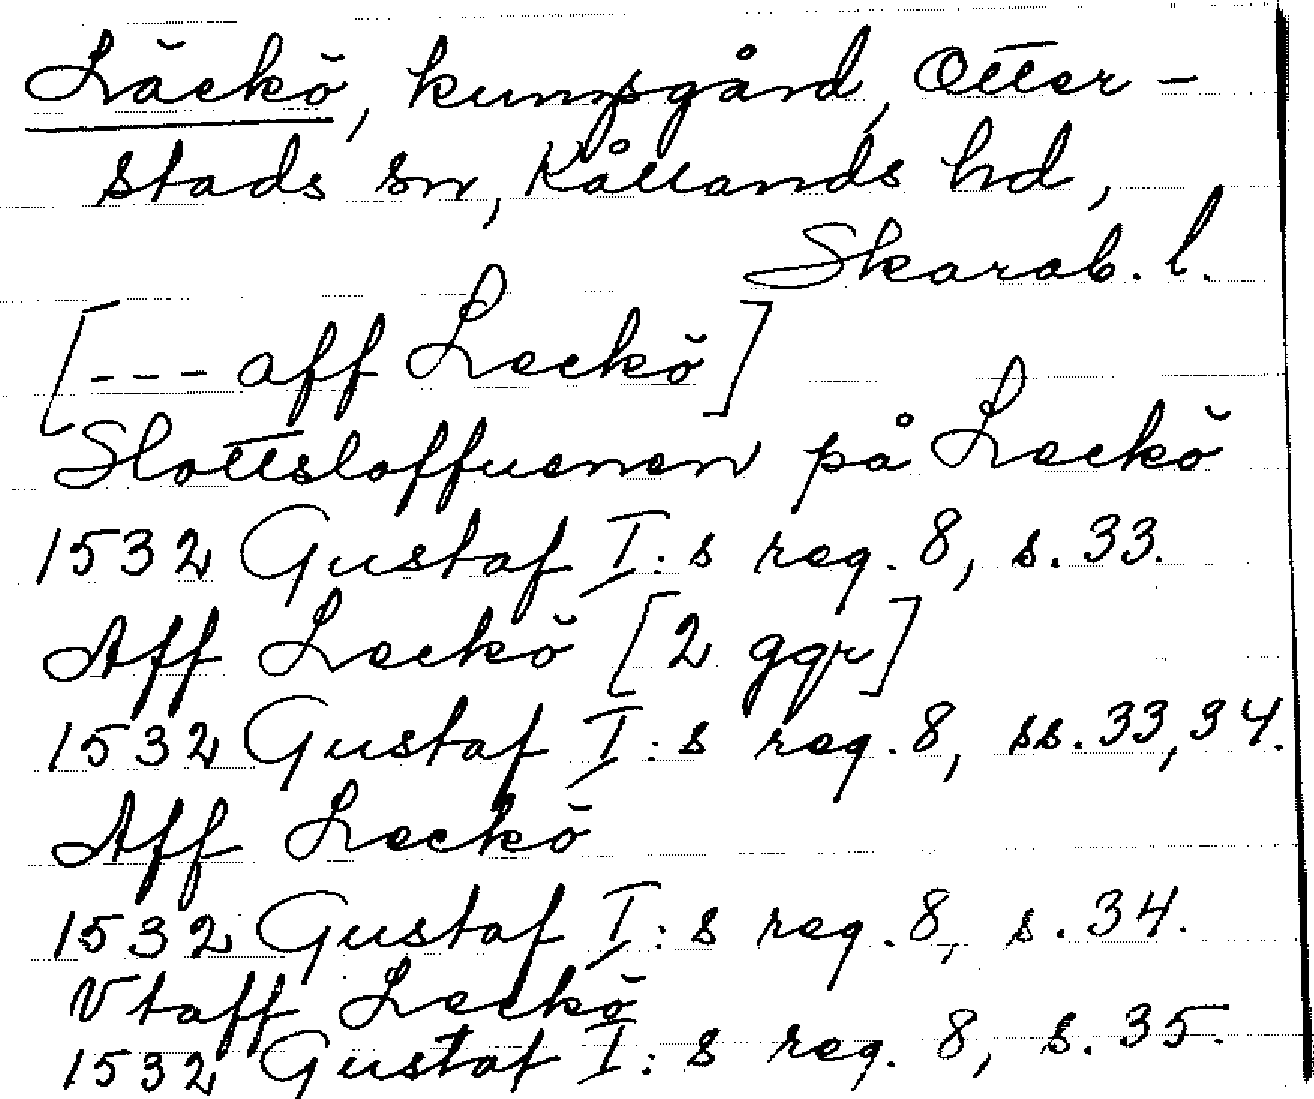 Läckö, kungsgård, Otter-
stads sn, Kållands hd,
Skarab. l.
[--- aff Leckö]
Slottsloffuenen på Leckö
1532 Gustaf I:s reg. 8, s. 33.
Aff Leckö [2 ggr]
1532 Gustaf I:s reg. 8, ss. 33, 34.
Aff Leckö
1532 Gustaf I:s reg. 8, s. 34.
Vtaff Leckö
1532 Gustaf I:s reg. 8, s. 35.